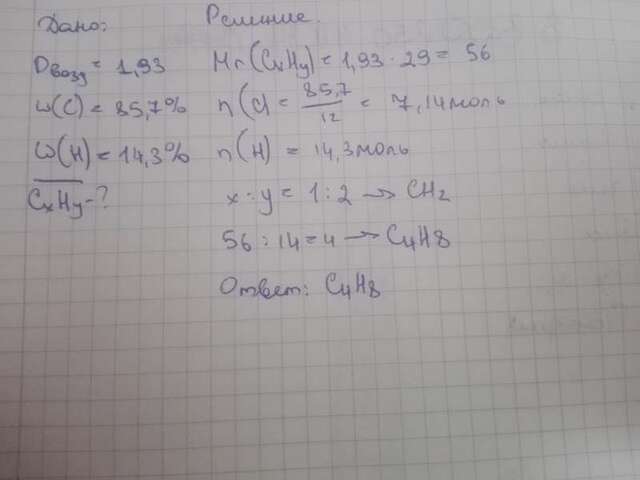 Дано:
Dвозд = 1,93
ω(C) = 85,7%
ω(H) = 14,3%
CxHy - ?
Решение.
Mr(CxHy) = 1,93 · 29 = 56
n(C) = 85,7/12 = 7,14 моль
n(H) = 14,3 моль
x : y = 1 : 2 → CH2
56 : 14 = 4 → C4H8
Ответ: C4H8